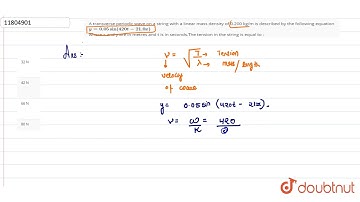 11804901
A transverse periodic wave on a string with a linear mass density of 0.200 kg/m is described by the following equation
y = 0.05 sin(420t − 21.0x)
where x and y are in metres and t is in seconds. The tension in the string is equal to :
32 N
42 N
66 N
80 N
Ans :-
v = √T/λ → Tension
→ mass / length
↓
velocity
of wave
y = 0.05 sin (420t - 21x).
v = ω/K = 420
doubtnut